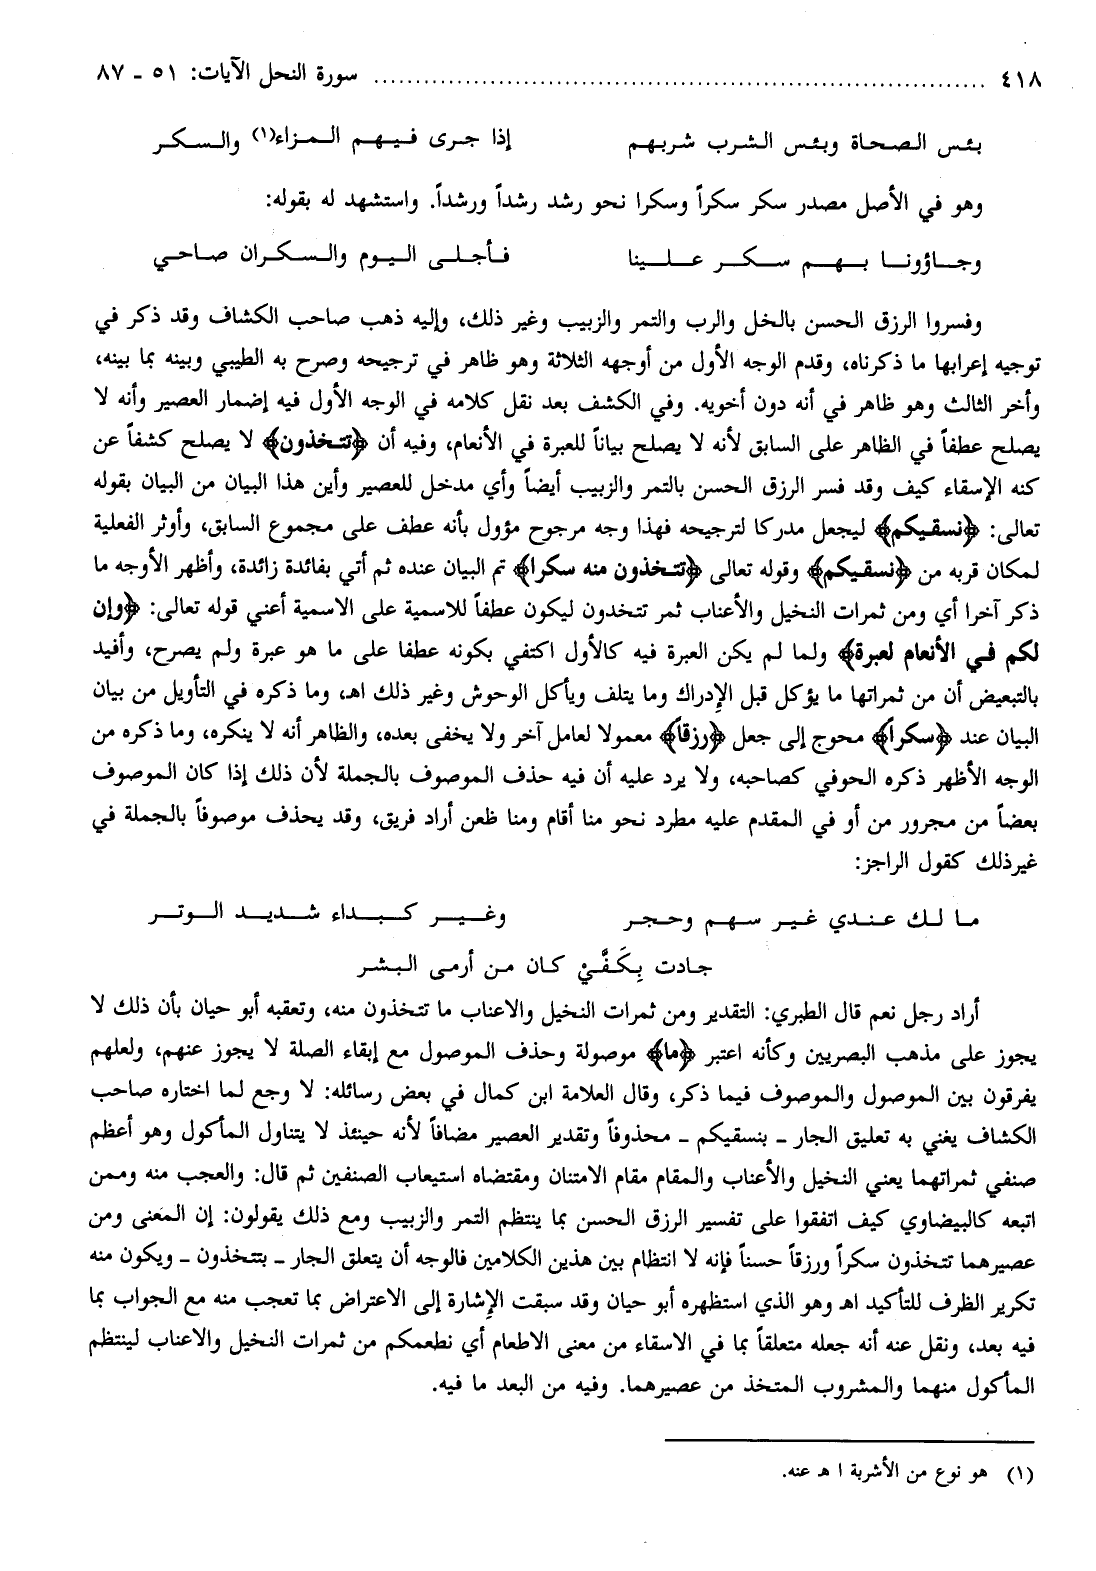 ٤١٨ ........................................ سورة النحل الآيات: ٥١ ـ ٨٧
بئس الصحاة وبئس الشرب شربهم إذا جرى فيهم المزاء(١) والسكر
وهو في الأصل مصدر سكر سكراً وسكرا نحو رشد رشداً ورشداً. واستشهد له بقوله:
وجاؤونا بهم سكر علينا فأجلى اليوم والسكران صاحي
وفسروا الرزق الحسن بالخل والرب والتمر والزبيب وغير ذلك، وإليه ذهب صاحب الكشاف وقد ذكر في
توجيه إعرابها ما ذكرناه، وقدم الوجه الأول من أوجهه الثلاثة وهو ظاهر في ترجيحه وصرح به الطيبي وبينه بما بينه،
وأخر الثالث وهو ظاهر في أنه دون أخويه. وفي الكشف بعد نقل كلامه في الوجه الأول فيه إضمار العصير وأنه لا
يصلح عطفاً في الظاهر على السابق لأنه لا يصلح بياناً للعبرة في الأنعام، وفيه أن ﴿تتخذون﴾ لا يصلح كشفاً عن
كنه الإسقاء كيف وقد فسر الرزق الحسن بالتمر والزبيب أيضاً وأي مدخل للعصير وأين هذا البيان من البيان بقوله
تعالى: ﴿نسقيكم﴾ ليجعل مدركا لترجيحه فهذا وجه مرجوح مؤول بأنه عطف على مجموع السابق، وأوثر الفعلية
لمكان قربه من ﴿نسقيكم﴾ وقوله تعالى ﴿تتخذون منه سكرا﴾ تم البيان عنده ثم أتي بفائدة زائدة، وأظهر الأوجه ما
ذكر آخرا أي ومن ثمرات النخيل والأعناب ثمر تتخدون ليكون عطفاً للاسمية على الاسمية أعني قوله تعالى: ﴿وإن
لكم في الأنعام لعبرة﴾ ولما لم يكن العبرة فيه كالأول اكتفي بكونه عطفا على ما هو عبرة ولم يصرح، وأفيد
بالتبعيض أن من ثمراتها ما يؤكل قبل الإدراك وما يتلف ويأكل الوحوش وغير ذلك اهـ، وما ذكره في التأويل من بيان
البيان عند ﴿سكراً﴾ محوج إلى جعل ﴿رزقاً﴾ معمولا لعامل آخر ولا يخفى بعده، والظاهر أنه لا ينكره، وما ذكره من
الوجه الأظهر ذكره الحوفي كصاحبه، ولا يرد عليه أن فيه حذف الموصوف بالجملة لأن ذلك إذا كان الموصوف
بعضاً من مجرور من أو في المقدم عليه مطرد نحو منا أقام ومنا ظعن أراد فريق، وقد يحذف موصوفاً بالجملة في
غيرذلك كقول الراجز:
ما لك عندي غير سهم وحجر وغير كبداء شديد الوتر
جادت بِكَفَّيْ كان من أرمى البشر
أراد رجل نعم قال الطبري: التقدير ومن ثمرات النخيل والاعناب ما تتخذون منه، وتعقبه أبو حيان بأن ذلك لا
يجوز على مذهب البصريين وكأنه اعتبر ﴿ما﴾ موصولة وحذف الموصول مع إبقاء الصلة لا يجوز عنهم، ولعلهم
يفرقون بين الموصول والموصوف فيما ذكر، وقال العلامة ابن كمال في بعض رسائله: لا وجع لما اختاره صاحب
الكشاف يغني به تعليق الجار ـ بنسقيكم ـ محذوفاً وتقدير العصير مضافاً لأنه حينئذ لا يتناول المأكول وهو أعظم
صنفي ثمراتهما يعني النخيل والأعناب والمقام مقام الامتنان ومقتضاه استيعاب الصنفين ثم قال: والعجب منه وممن
اتبعه كالبيضاوي كيف اتفقوا على تفسير الرزق الحسن بما ينتظم التمر والزبيب ومع ذلك يقولون: إن المعنى ومن
عصيرهما تتخذون سكراً ورزقاً حسناً فإنه لا انتظام بين هذين الكلامين فالوجه أن يتعلق الجار ـ بتتخذون ـ ويكون منه
تكرير الظرف للتأكيد اهـ وهو الذي استظهره أبو حيان وقد سبقت الإشارة إلى الاعتراض بما تعجب منه مع الجواب بما
فيه بعد، ونقل عنه أنه جعله متعلقاً بما في الاسقاء من معنى الاطعام أي نطعمكم من ثمرات النخيل والاعناب لينتظم
المأكول منهما والمشروب المتخذ من عصيرهما. وفيه من البعد ما فيه.
(١) هو نوع من الأشربة ا هـ عنه.